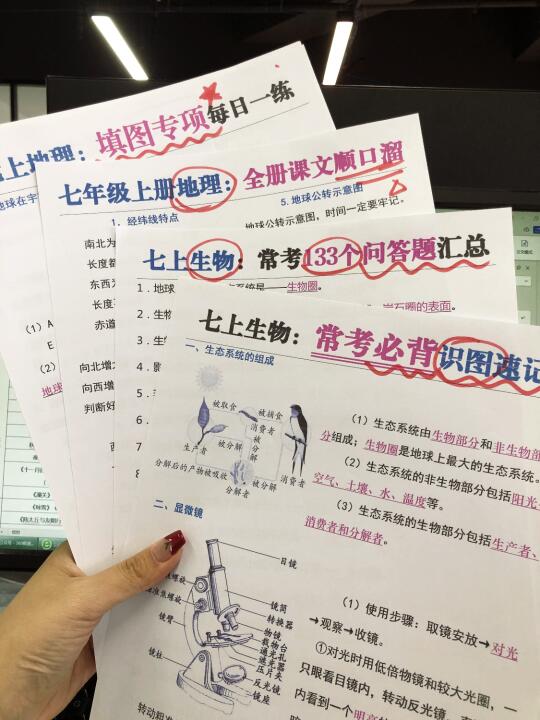 上地理：填图专项每日一练
地球在宇
（1）A
E
（2）
地球
七年级上册地理：全册课文顺口溜
1、经纬线特点
5. 地球公转示意图
南北为
地球公转示意图，时间一定要牢记。
长度都
东西为
长度
赤道
向北增大
向西增
判断好
七上生物：常考133个问答题汇总
1．地球
系统是——生物圈。
2．生物
岩石圈的表面。
3．生
4．
5．
6．
7．
8
七上生物：常考必背识图速记
一、生态系统的组成
被取食
被捕食
消费者
被分解
生产者
被分解
被分解
消费者
分解后的产物被吸收
分解者
（1）生态系统由生物部分和非生物部
分组成；生物圈是地球上最大的生态系统。
（2）生态系统的非生物部分包括阳光、
空气、土壤、水、温度等。
（3）生态系统的生物部分包括生产者、
消费者和分解者。
二、显微镜
目镜
准焦螺旋
准焦螺旋
镜臂
镜柱
镜筒
转换器
物镜
物台
通光孔
遮光器
压片夹
反光镜
镜座
（1）使用步骤：取镜安放→对光
→观察→收镜。
①对光时用低倍物镜和较大光圈，一
只眼看目镜内，转动反光镜，
内看到一个明亮的
转动粗准